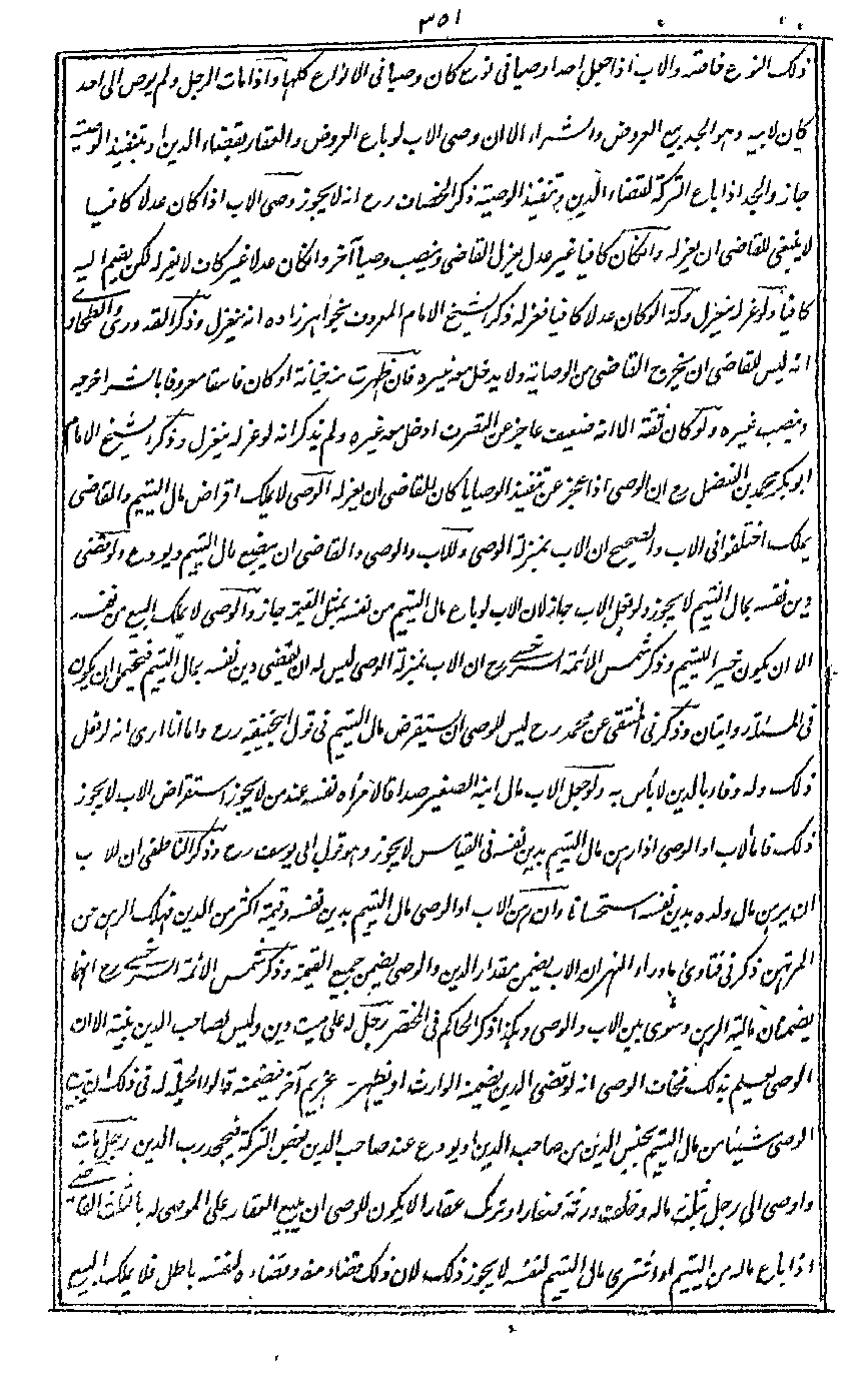 ٣٥١
ذلك النوع خاصة والاب اذا جعل احدا وصيا في نوع كان وصيا في الانواع كلها واذا مات الرجل ولم يوص الى احد
كان لابيه وهو الجد بيع العروض والشراء الا ان وصي الاب لو باع العروض والعقار بقضاء الدين او تنفيذ الوصية
جاز والجد اذا باع التركة لقضاء الدين و تنفيذ الوصية ذكر الخصاف رح انه لا يجوز وصي الاب اذا كان عدلا كافيا
لا ينبغي للقاضي ان يعزله وان كان كافيا غير عدل يعزل القاضي وينصب وصيا آخر وان كان عدلا غير كاف لا يعزله لكن يضم اليه
كافيا ولو عزله ينعزل وكذا لو كان عدلا كافيا فعزله ذكر الشيخ الامام المعروف بخواهر زاده انه ينعزل وذكر القدوري والطحاوي
انه ليس للقاضي ان يخرج القاضي من الوصاية ولا يدخل معه غيره فان ظهرت منه خيانة او كان فاسقا معروفا بالشر اخرجه
وينصب غيره ولو كان ثقة الا انه ضعيف عاجز عن التصرف ادخل معه غيره ولم يذكر انه لو عزله ينعزل وذكر الشيخ الامام
ابو بكر محمد بن الفضل رح ان الوصي اذا عجز عن تنفيذ الوصايا كان للقاضي ان يعزله الوصي لا يملك اقراض مال اليتيم والقاضي
يملك اختلفوا في الاب والصحيح ان الاب بمنزلة الوصي وللاب والوصي والقاضي ان يبضع مال اليتيم ويودع ولو قضى
دين نفسه بمال اليتيم لا يجوز ولو فعل الاب جاز لان الاب لو باع مال اليتيم من نفسه بمثل القيمة جاز والوصي لا يملك البيع من نفسه
الا ان يكون خيرا لليتيم وذكر شمس الائمة السرخسي رح ان الاب بمنزلة الوصي ليس له ان يقضي دين نفسه بمال اليتيم فيحتمل ان يكون
في المسئلة روايتان وذكر في المنتقى عن محمد رح ليس للوصي ان يستقرض مال اليتيم في قول ابي حنيفة رح واما انا ارى انه لو فعل
ذلك وله وفاء بالدين لا بأس به ولو جعل الاب مال ابنه الصغير صداقا لامرأة نفسه عند من لا يجوز استقراض الاب لا يجوز
ذلك فاما الاب او الوصي اذا رهن مال اليتيم بدين نفسه في القياس لا يجوز وهو قول ابي يوسف رح وذكر الناطفي ان للاب
ان يرهن مال ولده بدين نفسه استحسانا وان رهن الاب او الوصي مال اليتيم بدين نفسه وقيمته اكثر من الدين فهلك الرهن من
المرتهن ذكر في فتاوى ما وراء النهر ان الاب يضمن مقدار الدين والوصي يضمن جميع القيمة وذكر شمس الائمة السرخسي رح انهما
يضمنان مالية الرهن وسوى بين الاب والوصي وهكذا ذكر الحاكم في المختصر رجل له على ميت دين وليس لصاحب الدين بينة الا ان
الوصي يعلم بذلك فخاف الوصي انه لو قضى الدين يضمنه الوارث او يظهر غريم آخر فيضمنه قالوا الحيلة له في ذلك ان يبيع
الوصي شيئا من مال اليتيم بجنس الدين من صاحب الدين او يودع عند صاحب الدين بعض التركة فيجحد رب الدين رجل مات
واوصى الى رجل بثلث ماله وخلف ورثة صغارا وترك عقارا لا يكون للوصي ان يبيع العقار على الموصى له بالثلث القاضي
اذا باع ماله من اليتيم او اشترى مال اليتيم لنفسه لا يجوز ذلك لان ذلك قضاء منه وقضاءه لنفسه باطل فلا يملك البيع